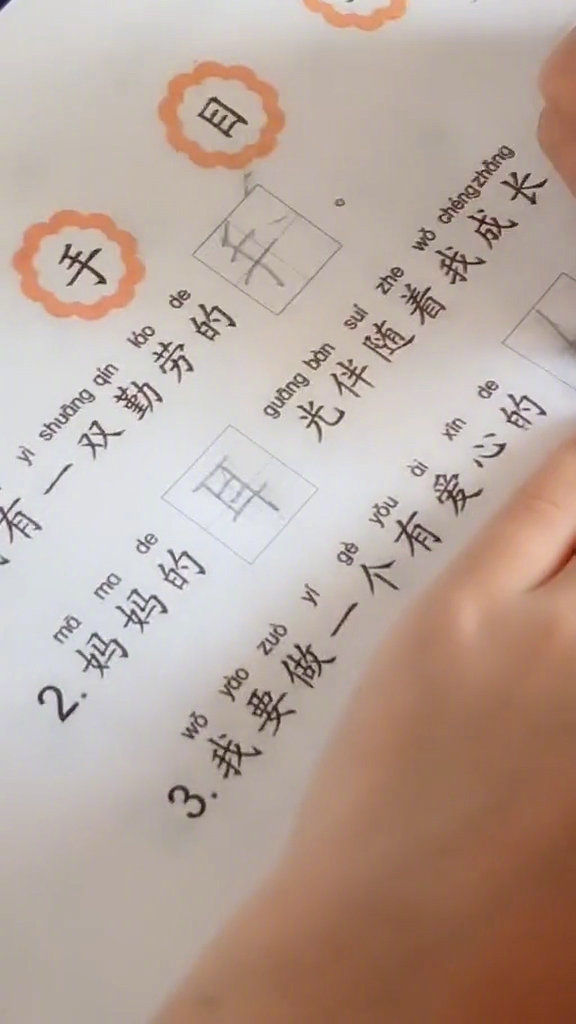 手 目
yì shuāng qín láo de
有一双勤劳的手。
mā ma de guāng bàn suí zhe wǒ chéngzhǎng
2. 妈妈的耳光伴随着我成长
wǒ yào zuò yí gè yǒu ài xīn de
3. 我要做一个有爱心的